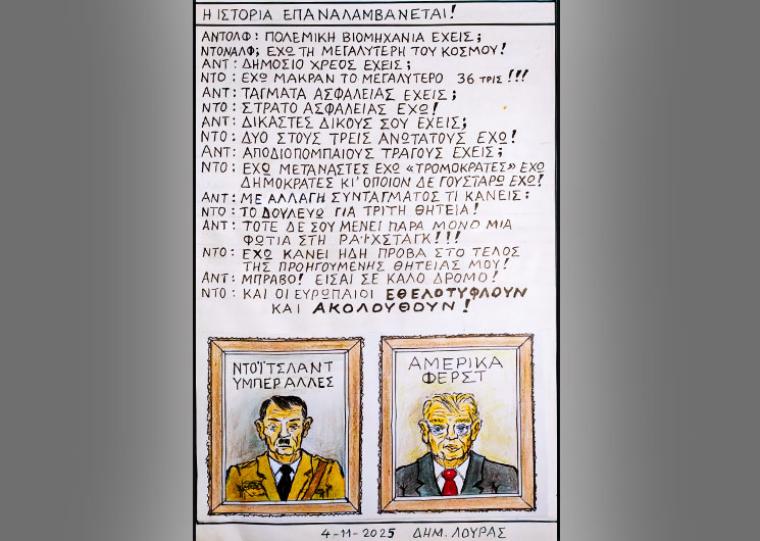 Η ΙΣΤΟΡΙΑ ΕΠΑΝΑΛΑΜΒΑΝΕΤΑΙ!
ΑΝΤΟΛΦ: ΠΟΛΕΜΙΚΗ ΒΙΟΜΗΧΑΝΙΑ ΕΧΕΙΣ;
ΝΤΟΝΑΛΦ; ΕΧΩ ΤΗ ΜΕΓΑΛΥΤΕΡΗ ΤΟΥ ΚΟΣΜΟΥ!
ΑΝΤ: ΔΗΜΟΣΙΟ ΧΡΕΟΣ ΕΧΕΙΣ;
ΝΤΟ: ΕΧΩ ΜΑΚΡΑΝ ΤΟ ΜΕΓΑΛΥΤΕΡΟ 36 ΤΡΙΣ!!!
ΑΝΤ: ΤΑΓΜΑΤΑ ΑΣΦΑΛΕΙΑΣ ΕΧΕΙΣ;
ΝΤΟ: ΣΤΡΑΤΟ ΑΣΦΑΛΕΙΑΣ ΕΧΩ!
ΑΝΤ: ΔΙΚΑΣΤΕΣ ΔΙΚΟΥΣ ΣΟΥ ΕΧΕΙΣ;
ΝΤΟ: ΔΥΟ ΣΤΟΥΣ ΤΡΕΙΣ ΑΝΩΤΑΤΟΥΣ ΕΧΩ!
ΑΝΤ: ΑΠΟΔΙΟΠΟΜΠΑΙΟΥΣ ΤΡΑΓΟΥΣ ΕΧΕΙΣ;
ΝΤΟ: ΕΧΩ ΜΕΤΑΝΑΣΤΕΣ ΕΧΩ «ΤΡΟΜΟΚΡΑΤΕΣ» ΕΧΩ
ΔΗΜΟΚΡΑΤΕΣ ΚΙ' ΟΠΟΙΟΝ ΔΕ ΓΟΥΣΤΑΡΩ ΕΧΩ!
ΑΝΤ: ΜΕ ΑΛΛΑΓΗ ΣΥΝΤΑΓΜΑΤΟΣ ΤΙ ΚΑΝΕΙΣ;
ΝΤΟ: ΤΟ ΔΟΥΛΕΥΩ ΓΙΑ ΤΡΙΤΗ ΘΗΤΕΙΑ!
ΑΝΤ: ΤΟΤΕ ΔΕ ΣΟΥ ΜΕΝΕΙ ΠΑΡΑ ΜΟΝΟ ΜΙΑ
ΦΩΤΙΑ ΣΤΗ ΡΑΪΧΣΤΑΓΚ!!!
ΝΤΟ: ΕΧΩ ΚΑΝΕΙ ΗΔΗ ΠΡΟΒΑ ΣΤΟ ΤΕΛΟΣ
ΤΗΣ ΠΡΟΗΓΟΥΜΕΝΗΣ ΘΗΤΕΙΑΣ ΜΟΥ!
ΑΝΤ: ΜΠΡΑΒΟ! ΕΙΣΑΙ ΣΕ ΚΑΛΟ ΔΡΟΜΟ!
ΝΤΟ: ΚΑΙ ΟΙ ΕΥΡΩΠΑΙΟΙ ΕΘΕΛΟΤΥΦΛΟΥΝ
ΚΑΙ ΑΚΟΛΟΥΘΟΥΝ!
ΝΤΟΪΤΣΛΑΝΤ
ΥΜΠΕΡ ΑΛΛΕΣ
ΑΜΕΡΙΚΑ
ΦΕΡΣΤ
4-11-2025 ΔΗΜ. ΛΟΥΡΑΣ